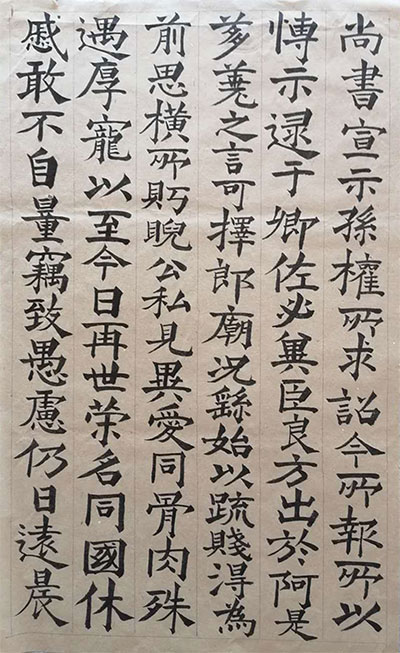 尚書宣示孫權所求詔令所報所以
愽示逮于卿佐必兾良方出於阿是
芻蕘之言可擇郎廟況繇始以疏賤淂為
前恩橫所眄睨公私見異愛同骨肉殊
遇厚寵以至今日再世荣名同國休
慼敢不自量竊致愚慮仍日達晨